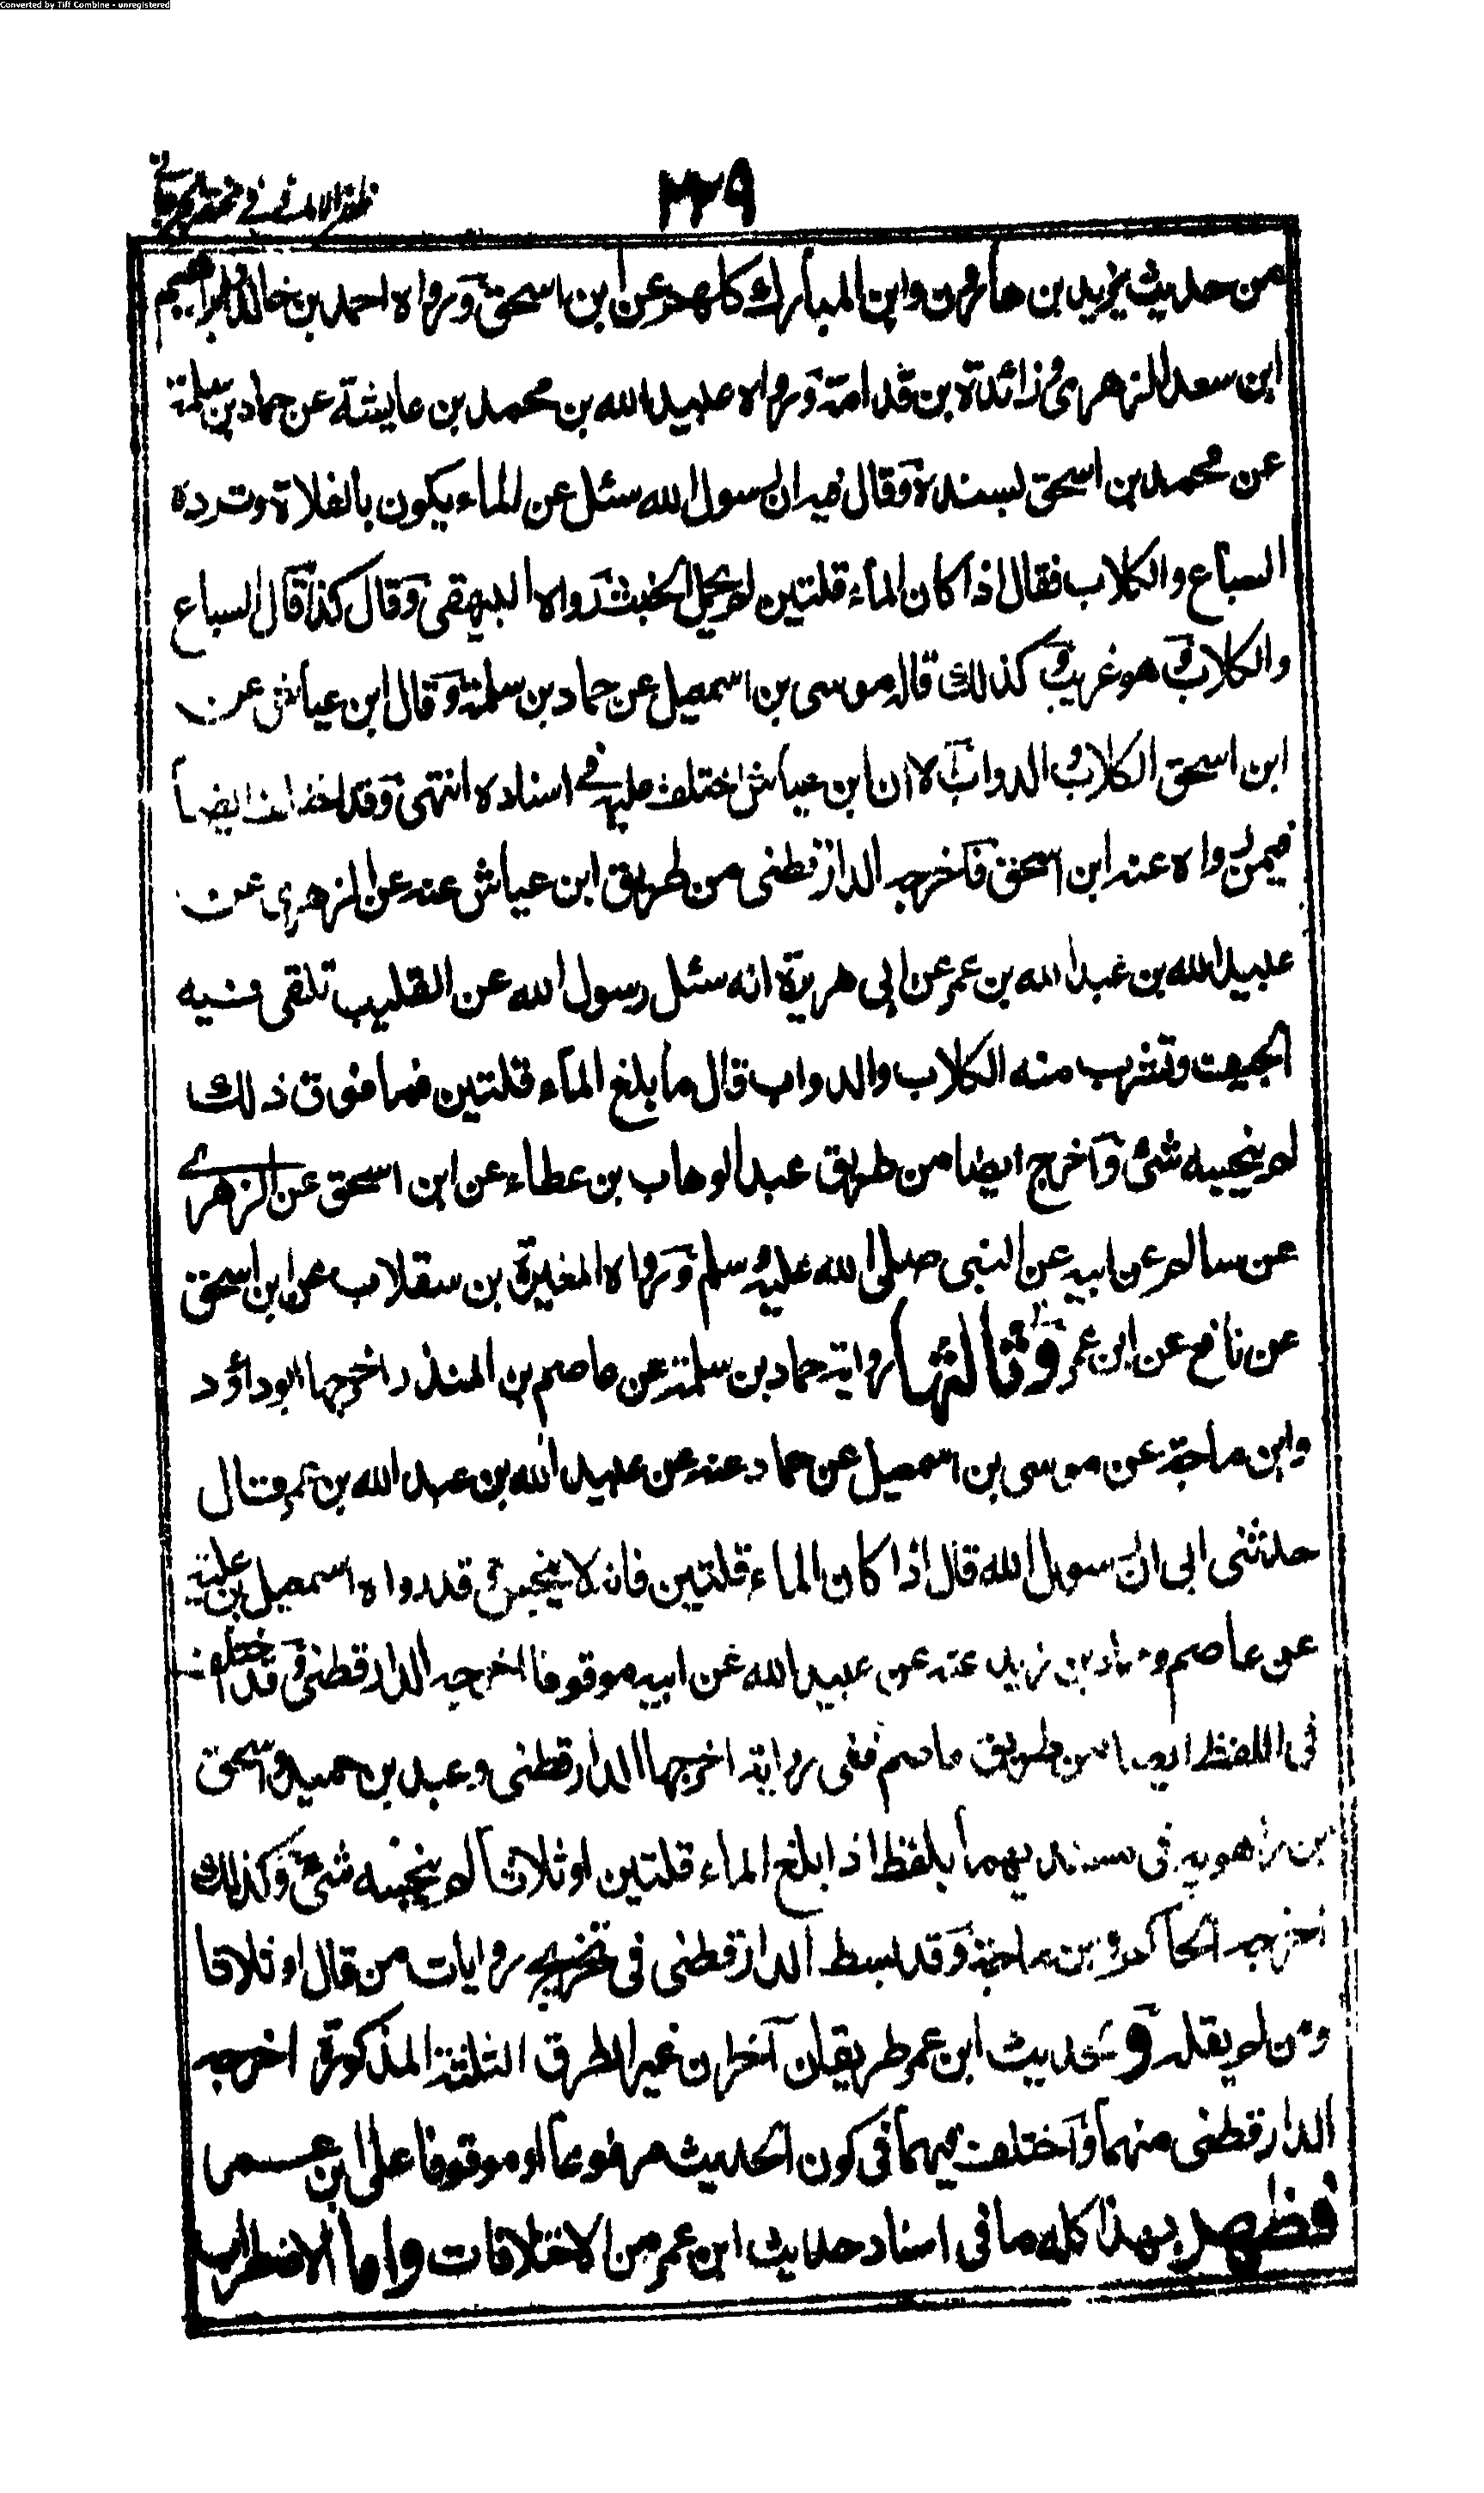 Converted by Tiff Combine - unregistered
٢٢٩
ظفر الاماني في مختصر الجرجاني
من حديث يزيد بن هارون وابن المبارك كلهم عن ابن اسحق ورواه احمد بن خالد وابراهيم
ابن سعد الزهري وزائدة بن قدامة ورواه عبيد الله بن محمد بن عايشة عن حماد بن سلمة
عن محمد بن اسحق بسنده وقال فيه ان رسول الله سئل عن الماء يكون بالفلاة وترده
السباع والكلاب فقال اذا كان الماء قلتين لم يحمل الخبث رواه البيهقي وقال كذا قال السباع
والكلاب وهو غريب وكذلك قاله موسى بن اسمعيل عن حماد بن سلمة وقال ابن عياش عن
ابن اسحق الكلاب والدواب الا ان ابن عياش اختلف عليه في اسناده انتهى وقد اختلف ايضا
فيمن رواه عنه ابن اسحق فاخرجه الدارقطني من طريق ابن عياش عنه عن الزهري عن
عبيد الله بن عبد الله بن عمر عن ابي هريرة انه سئل رسول الله عن القليب تلقى فيه
الجيف وتشرب منه الكلاب والدواب قال ما بلغ الماء قلتين فما فوق ذلك
لم ينجسه شئ وآخرج ايضا من طريق عبد الوهاب بن عطاء عن ابن اسحق عن الزهري
عن سالم عن ابيه عن النبي صلى الله عليه وسلم ورواه المغيرة بن سقلاب عن ابن اسحق
عن نافع عن ابن عمر وثالثها رواية حماد بن سلمة عن عاصم بن المنذر اخرجها ابو داؤد
وابن ماجة عن موسى بن اسمعيل عن حماد عنه عن عبيد الله بن عبد الله بن عمر قال
حدثني ابي ان رسول الله قال اذا كان الماء قلتين فانه لا ينجس وقد رواه اسمعيل بن علية
عن عاصم وحماد بن زيد عنه عن عبيد الله عن ابيه موقوفا اخرجه الدارقطني وقد اختلف
في اللفظ ايضا من طريق عاصم ففي رواية اخرجها الدارقطني وعبد بن حميد واسحق
بن راهويه في مسنديهما بلفظ اذا بلغ الماء قلتين او ثلاثا لم ينجسه شئ وكذلك
اخرجه الحاكم وابن ماجة وقد بسط الدارقطني في تخريج روايات من قال او ثلاثا
ومن لم يقله ولحديث ابن عمر طريقان آخران غير الطرق الثلثة المذكورة اخرجه
الدارقطني منهما وآختلف فيهما في كون الحديث مرفوعا او موقوفا على ابن عمر
فظهر بهذا كله ما في اسناد حديث ابن عمر من الاختلافات واما الاضطراب